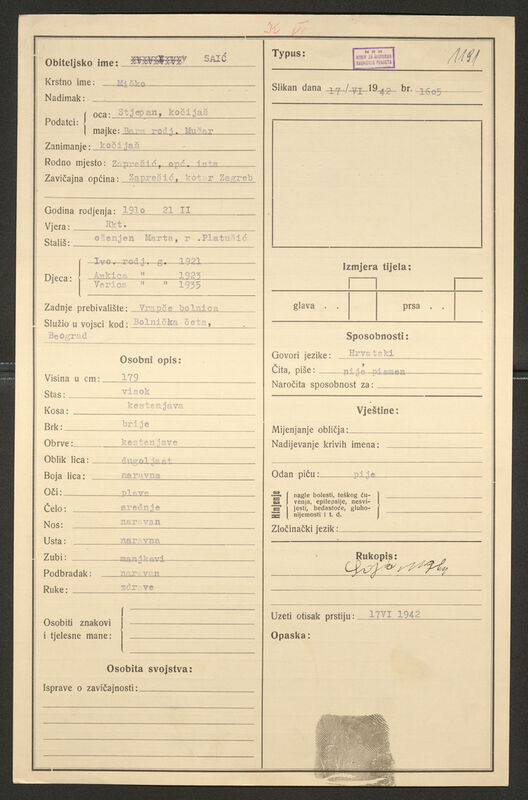 K VI
Obiteljsko ime: SAIĆ
Krstno ime: Miško
Nadimak:
Podatci: oca: Stjepan, kočijaš
majke: Bara rodj. Mučar
Zanimanje: kočijaš
Rodno mjesto: Zaprešić, opć. ista
Zavičajna općina: Zaprešić, kotar Zagreb
Godina rodjenja: 1910 21 II
Vjera: Rkt.
Stališ: oženjen Marta, r .Platušić
Djeca: Ivo. rodj. g. 1921
Ankica " 1923
Verica " " 1935
Zadnje prebivalište: Vrapče bolnica
Služio u vojsci kod: Bolnička četa,
Beograd
Osobni opis:
Visina u cm: 179
Stas: visok
Kosa: kestenjava
Brk: brije
Obrve: kestenjave
Oblik lica: dugoljast
Boja lica: naravna
Oči: plave
Čelo: srednje
Nos: naravan
Usta: naravna
Zubi: manjkavi
Podbradak: naravan
Ruke: zdrave
Osobiti znakovi
i tjelesne mane:
Osobita svojstva:
Isprave o zavičajnosti:
Typus:
1191
Slikan dana 17/VI 1942 br. 1605
Izmjera tijela:
glava . . prsa . .
Sposobnosti:
Govori jezike: Hrvatski
Čita, piše: nije pismen
Naročita sposobnost za:
Vještine:
Mijenjanje obličja:
Nadijevanje krivih imena:
Odan piću: pije
Himjenje nagle bolesti, teškog ću-
venja, epilepsije, nesvi-
jesti, bedastoće, gluho-
nijemosti i t. d.
Zločinački jezik:
Rukopis:
Uzeti otisak prstiju: 17VI 1942
Opaska: